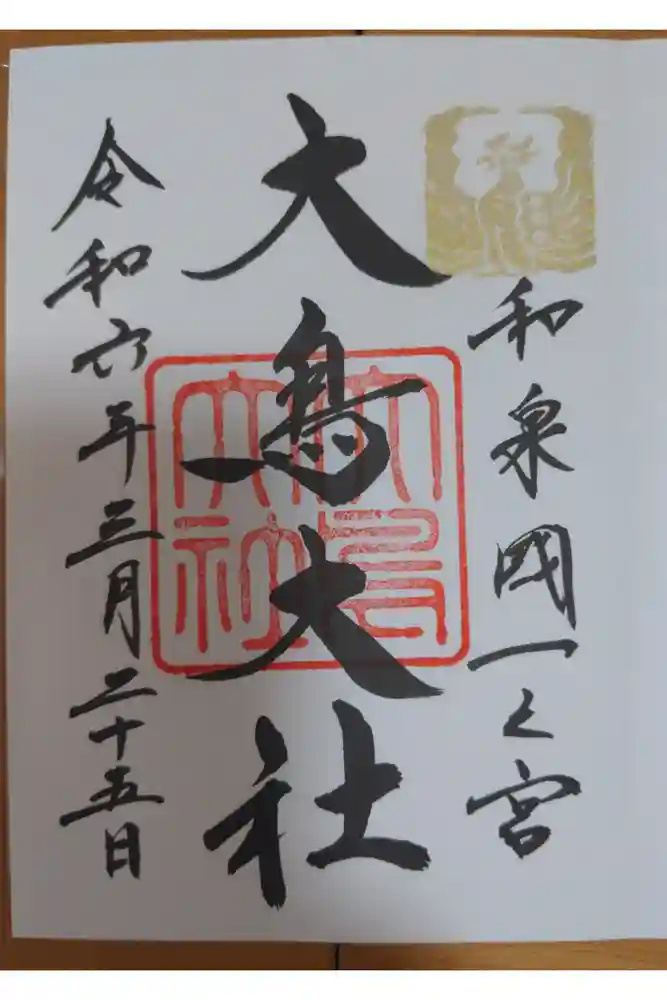 和泉國一之宮
大鳥大社
大鳥大社
令和六年三月二十五日